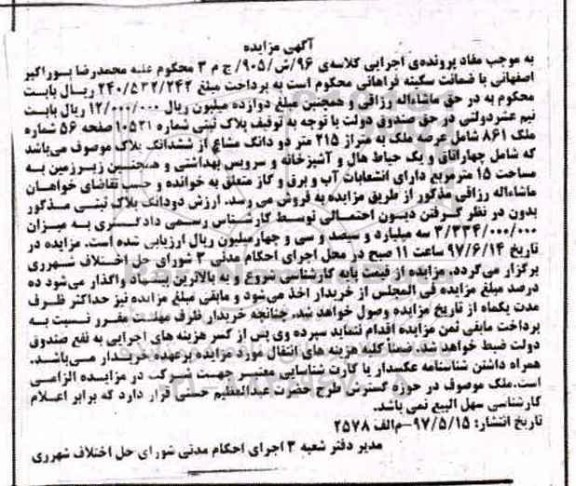 آگهی مزایده
به موجب مفاد پرونده‌ی اجرایی کلاسه‌ی ۹۶/ش/۹۰۵/ج م ۳ محکوم علیه محمدرضا پوراکبر
اصفهانی با ضمانت سکینه فراهانی محکوم است به پرداخت مبلغ ۲۴۰/۵۳۲/۲۴۲ ریال بابت
محکوم به در حق ماشاءاله رزاقی و همچنین مبلغ دوازده میلیون ریال ۱۲/۰۰۰/۰۰۰ ریال بابت
نیم عشردولتی در حق صندوق دولت با توجه به توقیف پلاک ثبتی شماره ۱۰۵۳۱ صفحه ۵۶ شماره
ملک ۸۶۱ شامل عرصه ملک به متراژ ۲۱۵ متر دو دانگ مشاع از ششدانگ پلاک موصوف می‌باشد
که شامل چهاراتاق و یک حیاط هال و آشپزخانه و سرویس بهداشتی و همچنین زیرزمین به
مساحت ۱۵ مترمربع دارای انشعابات آب و برق و گاز متعلق به خوانده و حسب تقاضای خواهان
ماشاءاله رزاقی مذکور از طریق مزایده به فروش می رسد. ارزش دودانگ پلاک ثبتی مذکور
بدون در نظر گرفتن دیون احتمالی توسط کارشناس رسمی دادگستری به میزان
۳/۳۳۴/۰۰۰/۰۰۰ سه میلیارد و سیصد و سی و چهارمیلیون ریال ارزیابی شده است. مزایده در
تاریخ ۹۷/۶/۱۴ ساعت ۱۱ صبح در محل اجرای احکام مدنی ۳ شورای حل اختلاف شهرری
برگزار می‌گردد. مزایده از قیمت پایه کارشناسی شروع و به بالاترین پیشنهاد واگذار می‌شود ده
درصد مبلغ مزایده فی المجلس از خریدار اخذ می‌شود و مابقی مبلغ مزایده نیز حداکثر ظرف
مدت یکماه از تاریخ مزایده وصول خواهد شد. چنانچه خریدار ظرف مهلت مقرر نسبت به
پرداخت مابقی ثمن مزایده اقدام ننماید سپرده وی پس از کسر هزینه های اجرایی به نفع صندوق
دولت ضبط خواهد شد. ضمناً کلیه هزینه های انتقال مورد مزایده برعهده خریدار می‌باشد.
همراه داشتن شناسنامه عکسدار یا کارت شناسایی معتبر جهت شرکت در مزایده الزامی
است.ملک موصوف در حوزه گسترش طرح حضرت عبدالعظیم حسنی قرار دارد که برابر اعلام
کارشناسی سهل البیع نمی باشد.
تاریخ انتشار: ۹۷/۵/۱۵-م‌الف ۲۵۷۸
مدیر دفتر شعبه ۳ اجرای احکام مدنی شورای حل اختلاف شهرری